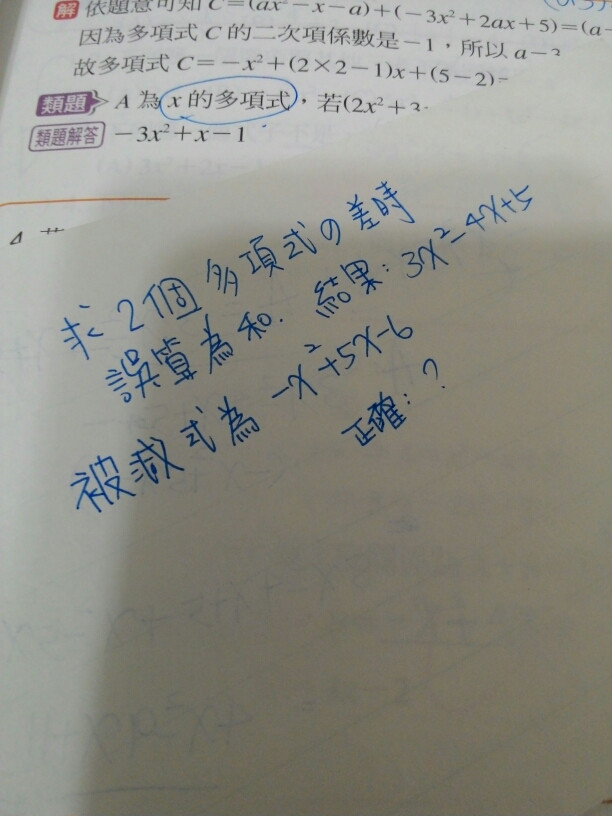 解 依題意可知 C=(ax²-x-a)+(-3x²+2ax+5)=(a-
因為多項式 C 的二次項係數是-1,所以 a-3
故多項式 C=-x²+(2×2-1)x+(5-2)=
類題 A 為 x 的多項式,若(2x²+3
類題解答 -3x²+x-1
求2個多項式の差時
誤算為和. 結果:3x²-4x+5
被減式為 -x²+5x-6
正確:?